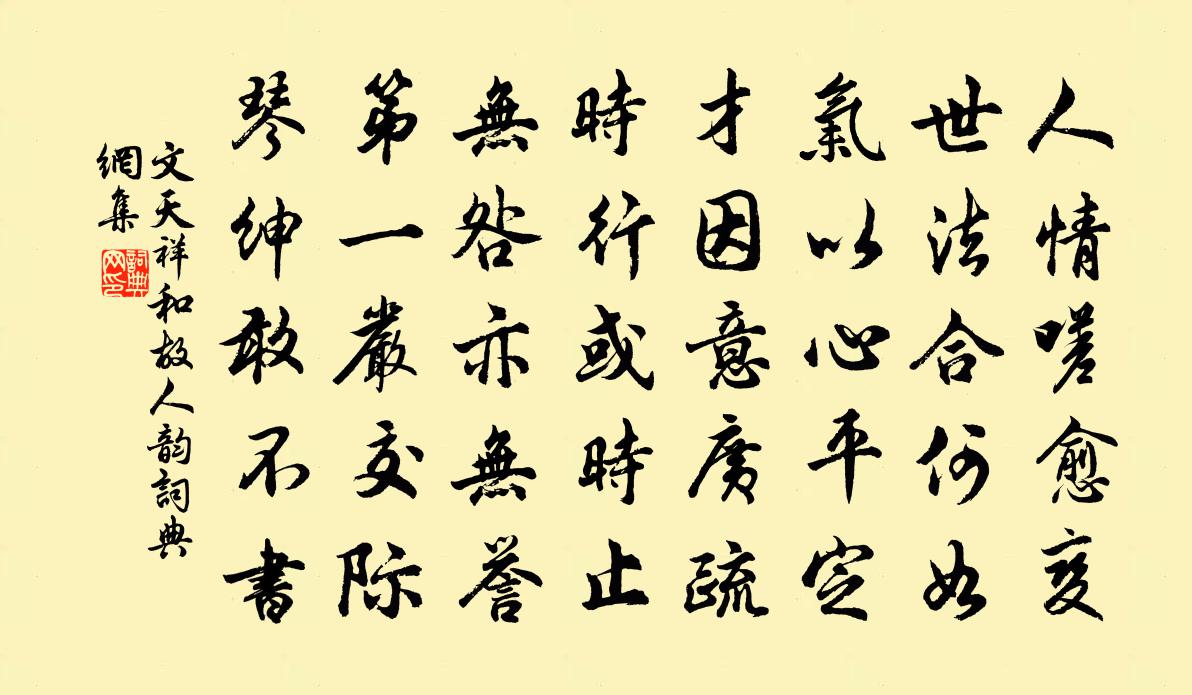 人情嗟愈变
世法合何如
氣以心平定
才因意廣疏
時行或時止
無咎亦無譽
第一嚴交际
琴紳敢不書
文天祥和故人韵詞典
網集
詞典
网印